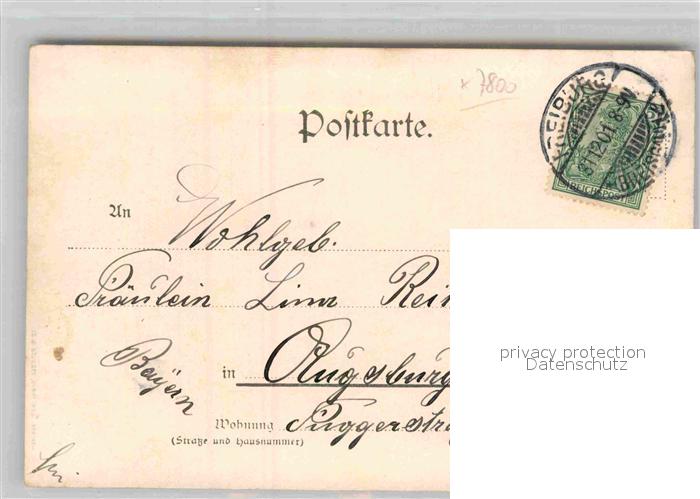 x 7800
Postkarte.
FREIBURG
31.12.01. 8-9V
(BREISGAU)
REICHSPOST
An
Wohlgeb.
Fräulein Lina Rei
Bayern
in Augsburg
Wohnung Fuggerstr
(Straße und Hausnummer)
privacy protection
Datenschutz